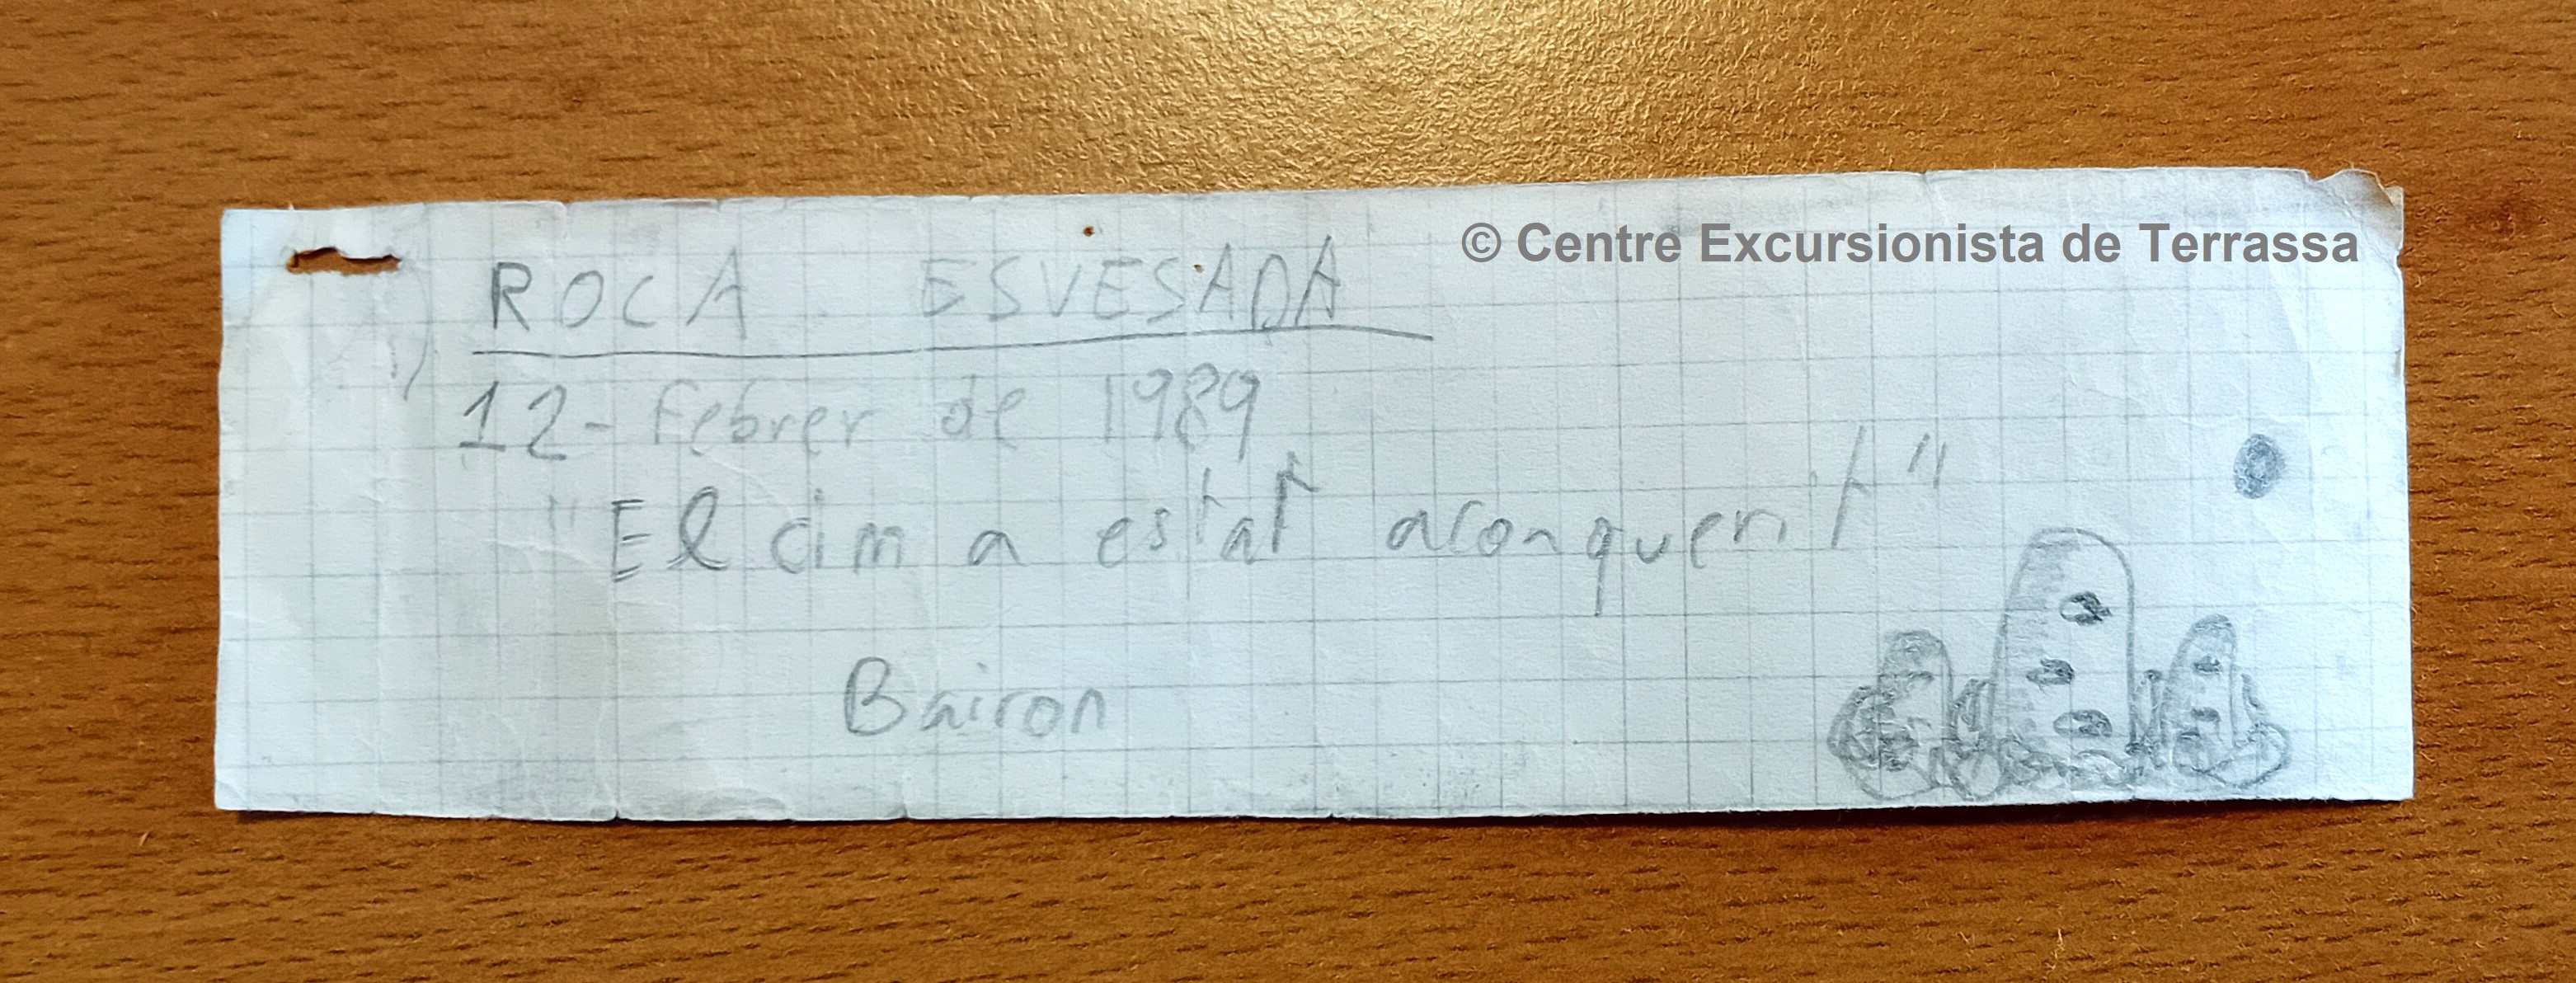 © Centre Excursionista de Terrassa
ROCA ESVESADA
12 - Febrer de 1989
"El cim a estat aconquerit"
Bairon